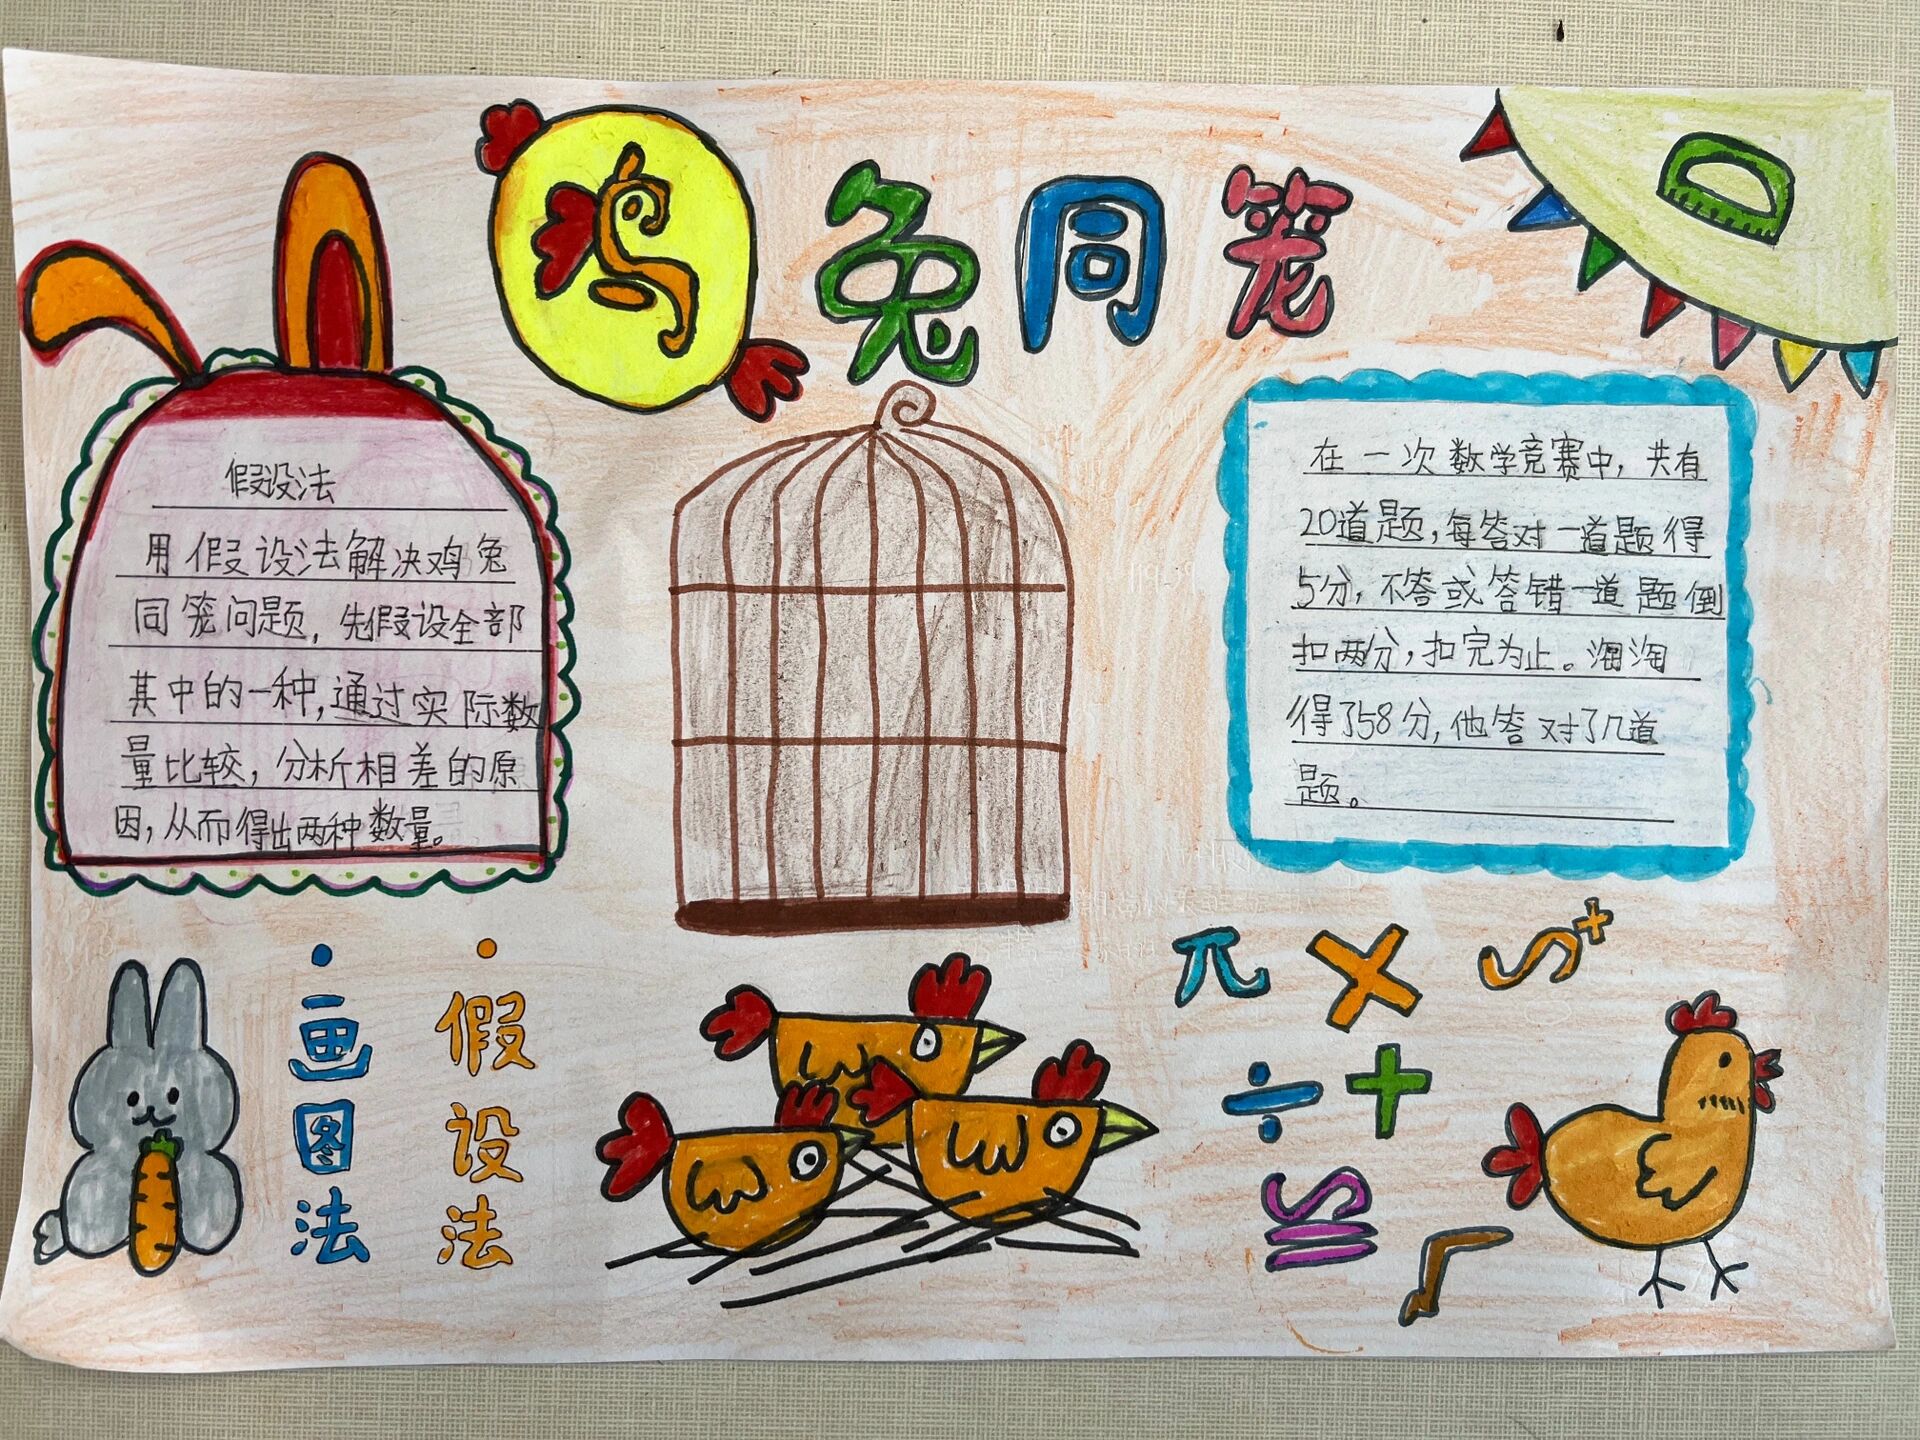 鸡兔同笼
假设法
用假设法解决鸡兔
同笼问题，先假设全部
其中的一种，通过实际数
量比较，分析相差的原
因，从而得出两种数量。
在一次数学竞赛中，共有
20道题，每答对一道题得
5分，不答或答错一道题倒
扣两分，扣完为止。淘淘
得了58分，他答对了几道
题。
·画图法
·假设法
π × S+
÷ +